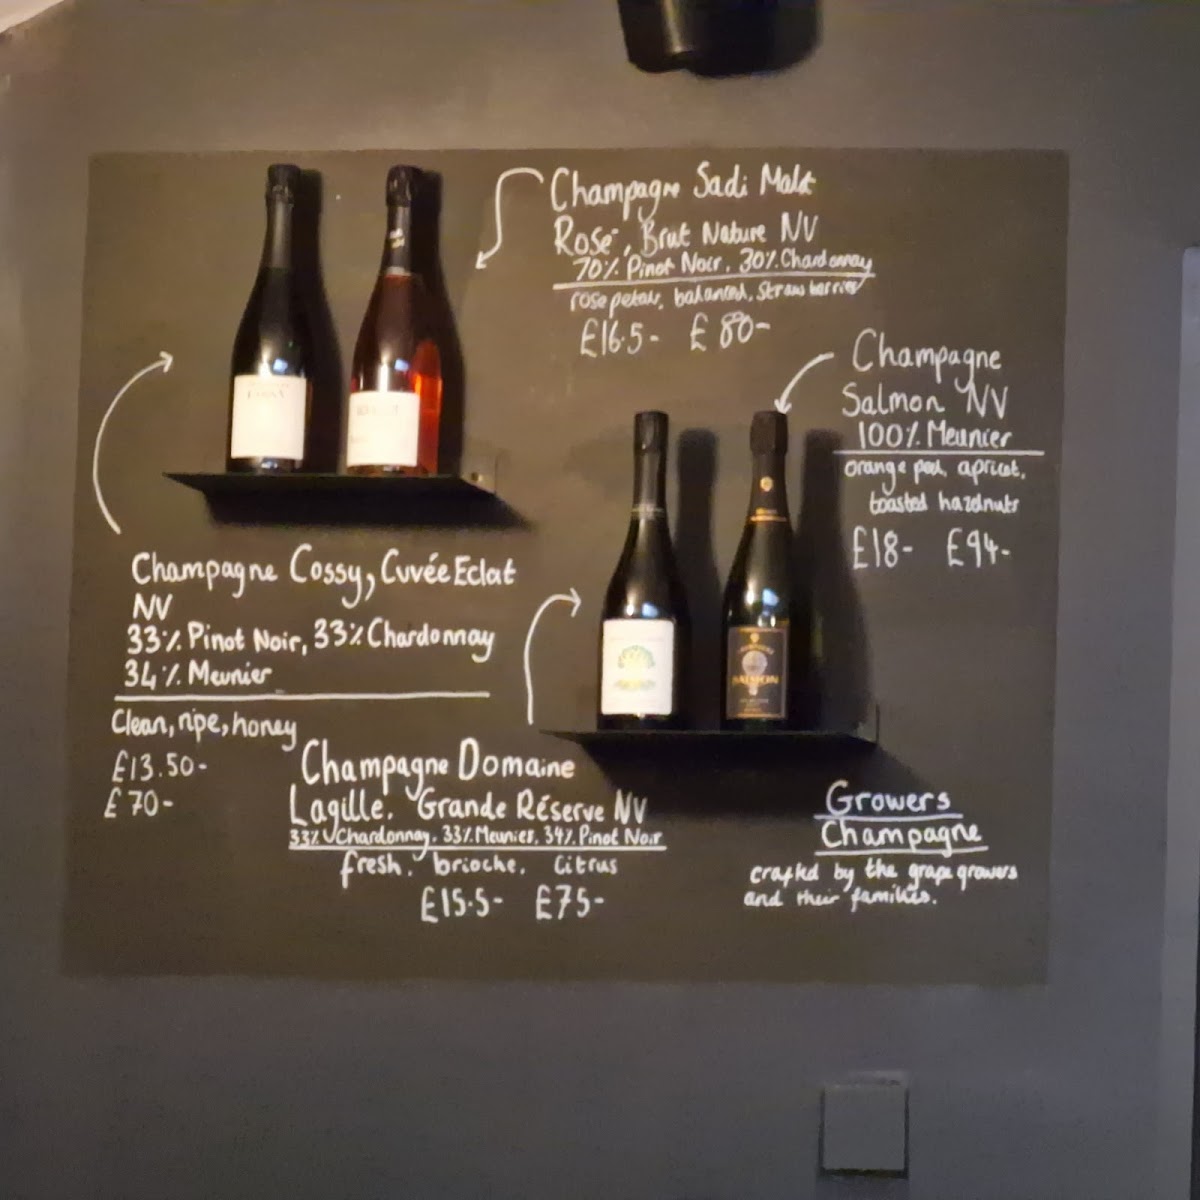 Champagne Sadi Malot
Rosé, Brut Nature NV
70% Pinot Noir, 30% Chardonnay
rose petals, balanced, strawberries
£16.5- £80-
Champagne
Salmon NV
100% Meunier
orange peel, apricot,
toasted hazelnuts
£18- £94-
Champagne Cossy, Cuvée Eclat
NV
33% Pinot Noir, 33% Chardonnay
34% Meunier
Clean, ripe, honey
£13.50-
£70-
Champagne Domaine
Lagille. Grande Réserve NV
33% Chardonnay, 33% Meunier, 34% Pinot Noir
fresh, brioche, citrus
£15.5- £75-
Growers
Champagne
crafted by the grape growers
and their families.
COSSY
SALMON